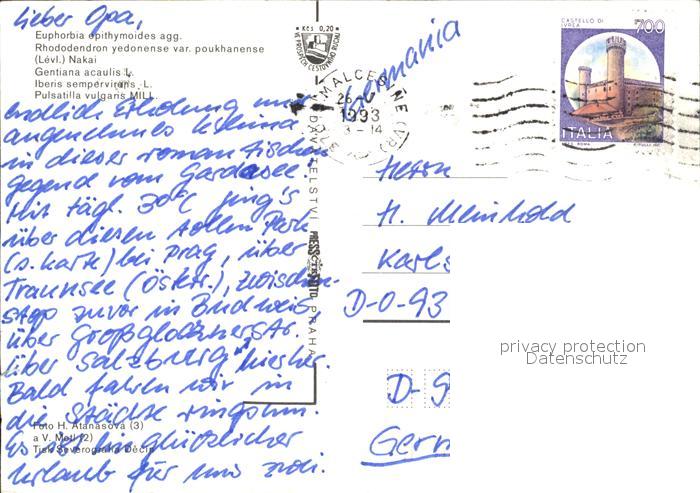 Lieber Opa,
Euphorbia epithymoides agg.
Rhododendron yedonense var. poukhanense
(Lévl.) Nakai
Gentiana acaulis L.
Iberis sempervirens L.
Pulsatilla vulgaris MILL.
endlich Erholung und
angenehmes Klima
in dieser romantischen
Gegend vom Gardasee!
Mit tägl. 30°C ging's
über diesen tollen Park
(s. Karte) bei Prag, über
Traunsee (Österr.), Zwischen-
stop zuvor in Budweis,
über Großglocknerstr.
über Salzburg hierher.
Bald fahren wir in
die Städte ringsum.
Es ist ein glücklicher
Urlaub für uns zwei.
Foto H. Atanasová (3)
a V. Motl (2)
Tisk Severografia Děčín
Kčs 0,20
VE PROSPĚCH CESTOVNÍHO RUCHU
VYDAVATELSTVÍ PRESSFOTO PRAHA
Germania
MALCESINE (VR)
1993
3-14
CASTELLO DI
IVREA
700
ITALIA
Herrn
H. Meinhold
Karls
D-O-93
D-9
Germ
privacy protection
Datenschutz